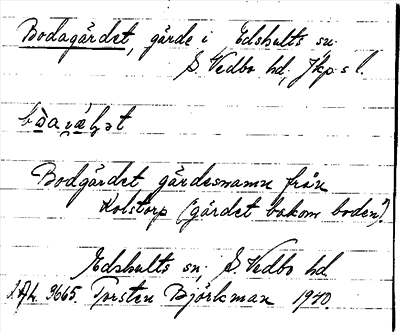 Bodagärdet, gärde i Edshults sn.
S. Vedbo hd, Jkps l.
Bodgärdet gärdesnamn från
Kolstorp ("gärdet bakom boden").
Edshults sn, S. Vedbo hd
3665. Torsten Björkman 1940.